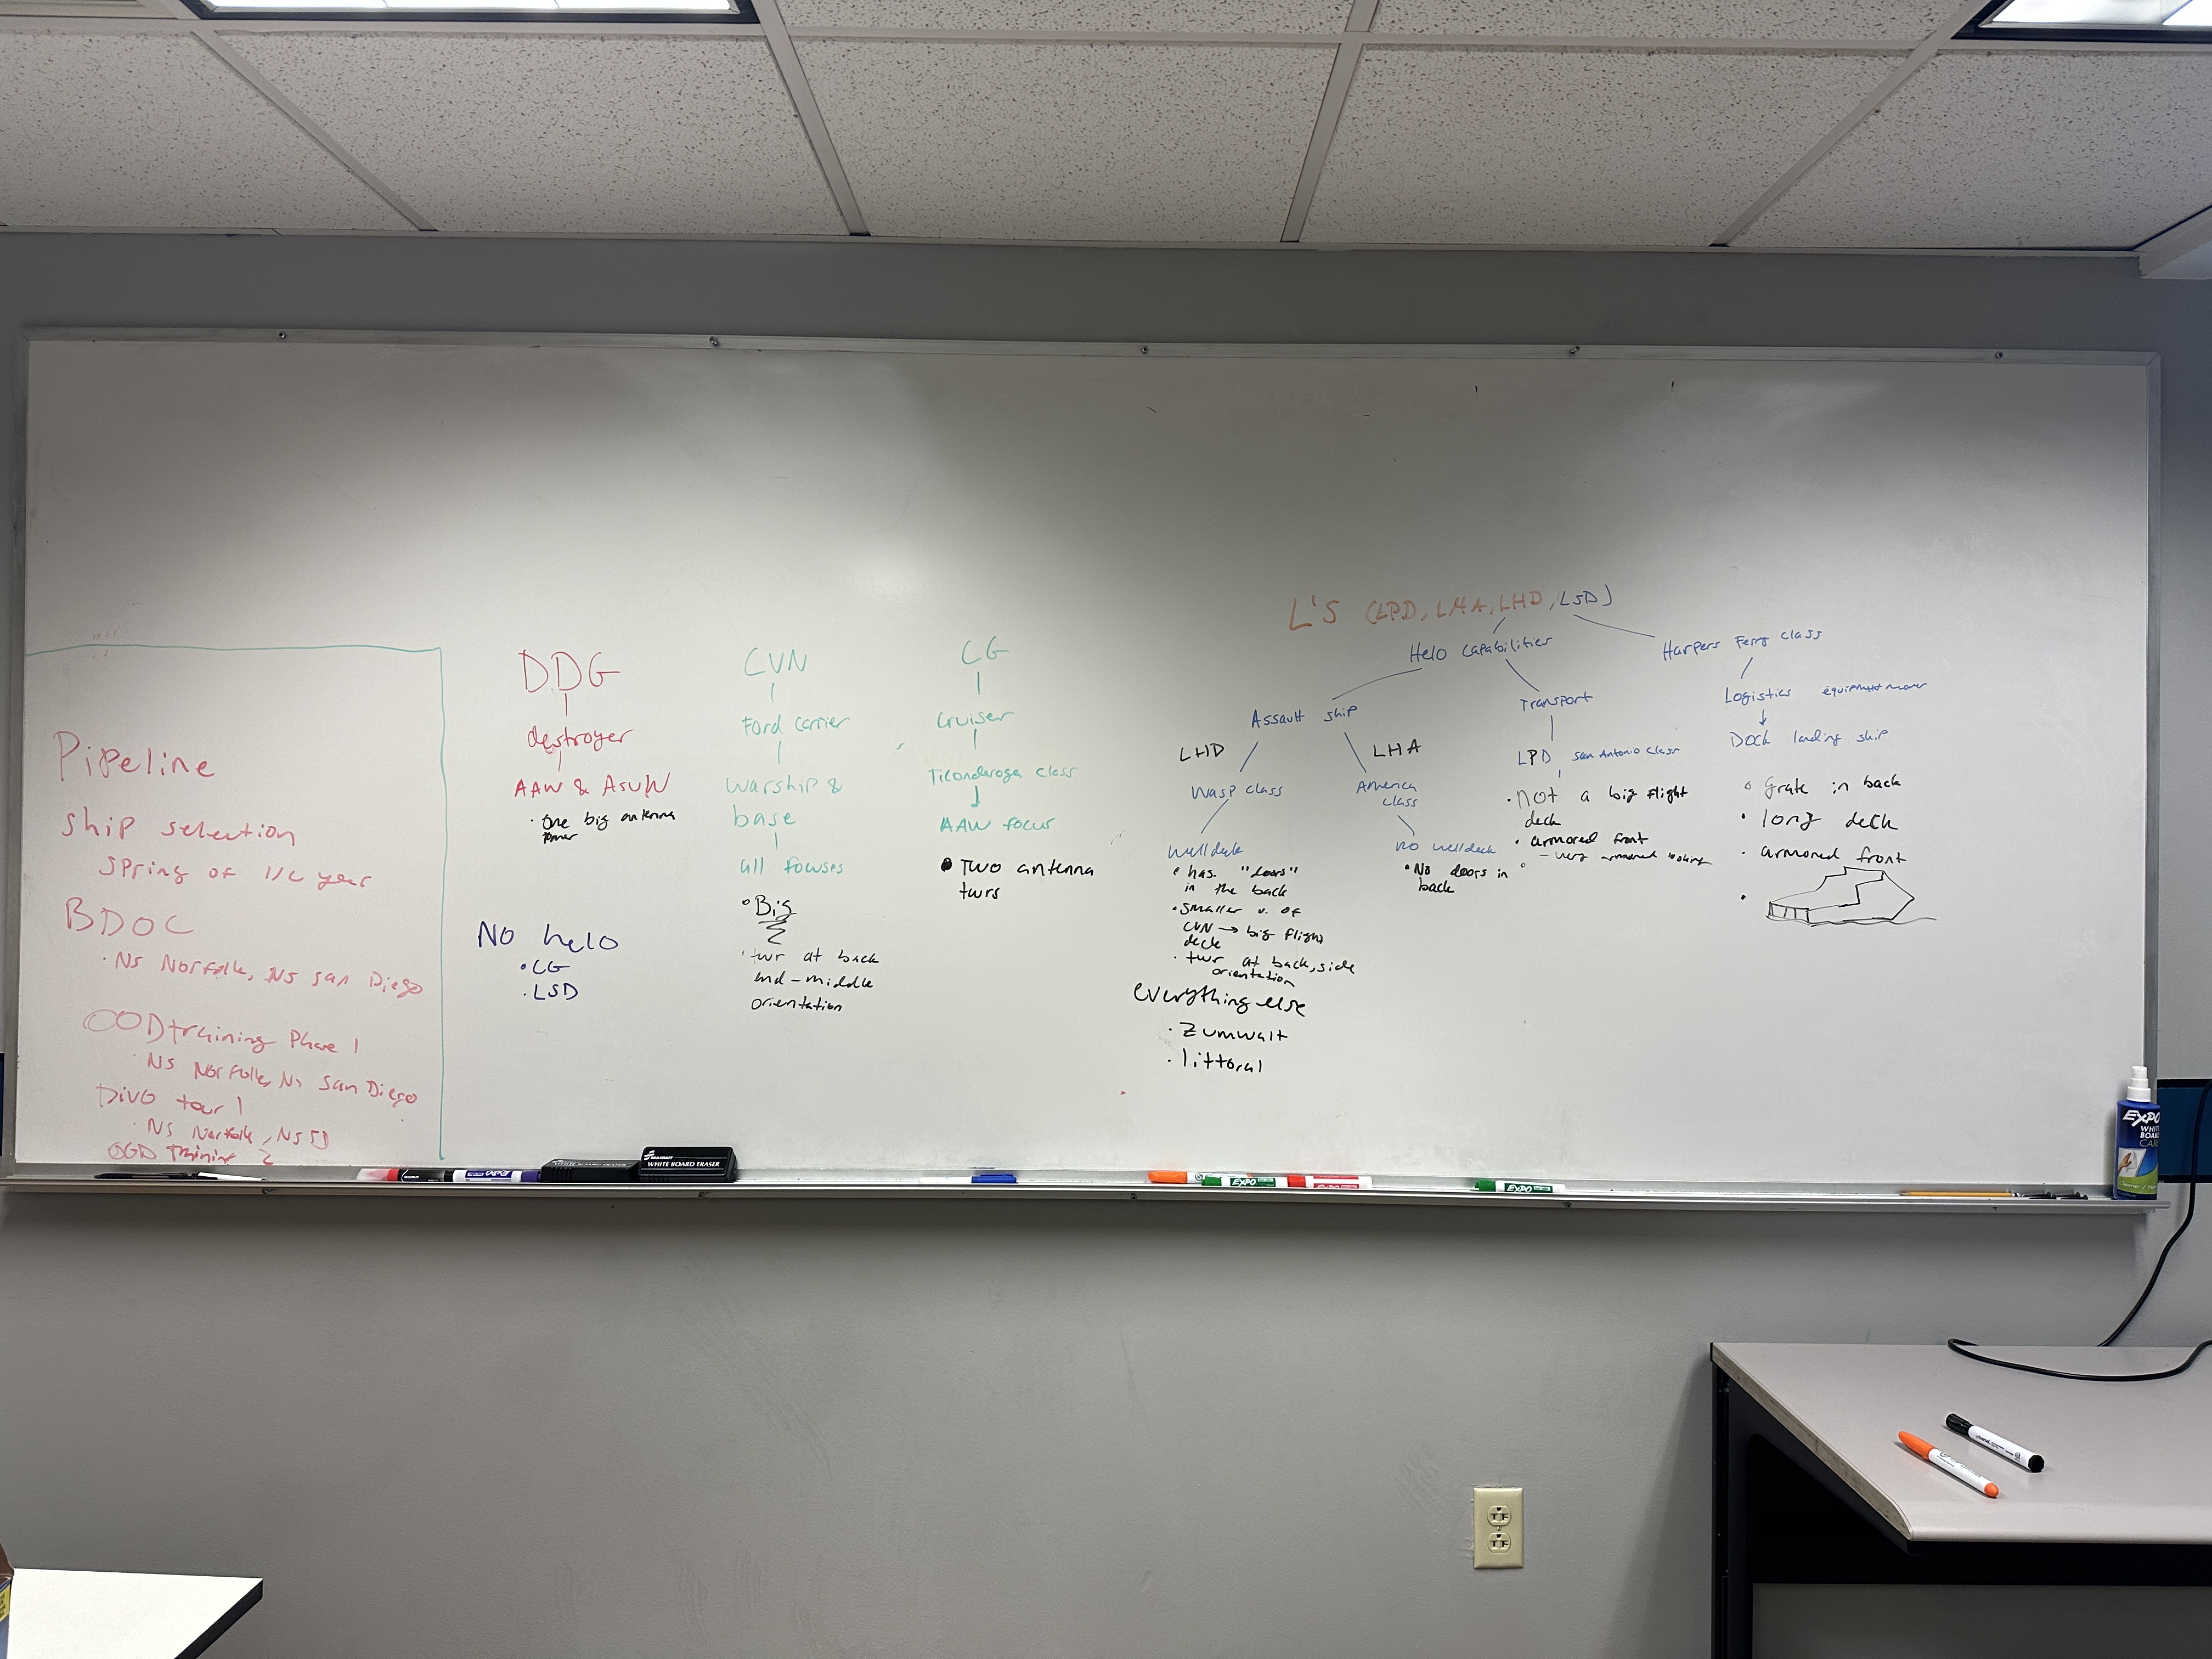 Pipeline
ship selection
spring of 1/c year
BDOC
• NS Norfolk, NS San Diego
OOD training Phase 1
• NS Norfolk, NS San Diego
DIVO tour 1
• NS Norfolk, NS SD
OOD Training 2
DDG
destroyer
AAW & ASUW
• One big antenna
tower
No helo
• CG
• LSD
CVN
Ford carrier
warship &
base
all focuses
• Big
• twr at back
end-middle
orientation
CG
Cruiser
Ticonderoga class
AAW focus
• Two antenna
twrs
L's (LPD, LHA, LHD, LSD)
Helo capabilities
Assault ship
LHD
Wasp class
Welldeck
• has "doors"
in the back
• smaller v. of
CVN → big flight
deck
• twr at back, side
orientation
LHA
America
class
no welldeck
• No doors in
back
Transport
LPD San Antonio class
• Not a big flight
deck
• armored front
- very armored looking
Harpers Ferry class
Logistics equipment mover
Dock landing ship
• grate in back
• long deck
• armored front
everything else
• Zumwalt
• littoral
WHITE BOARD ERASER
EXPO
EXPO
EXPO
WHITE
BOARD
CARE